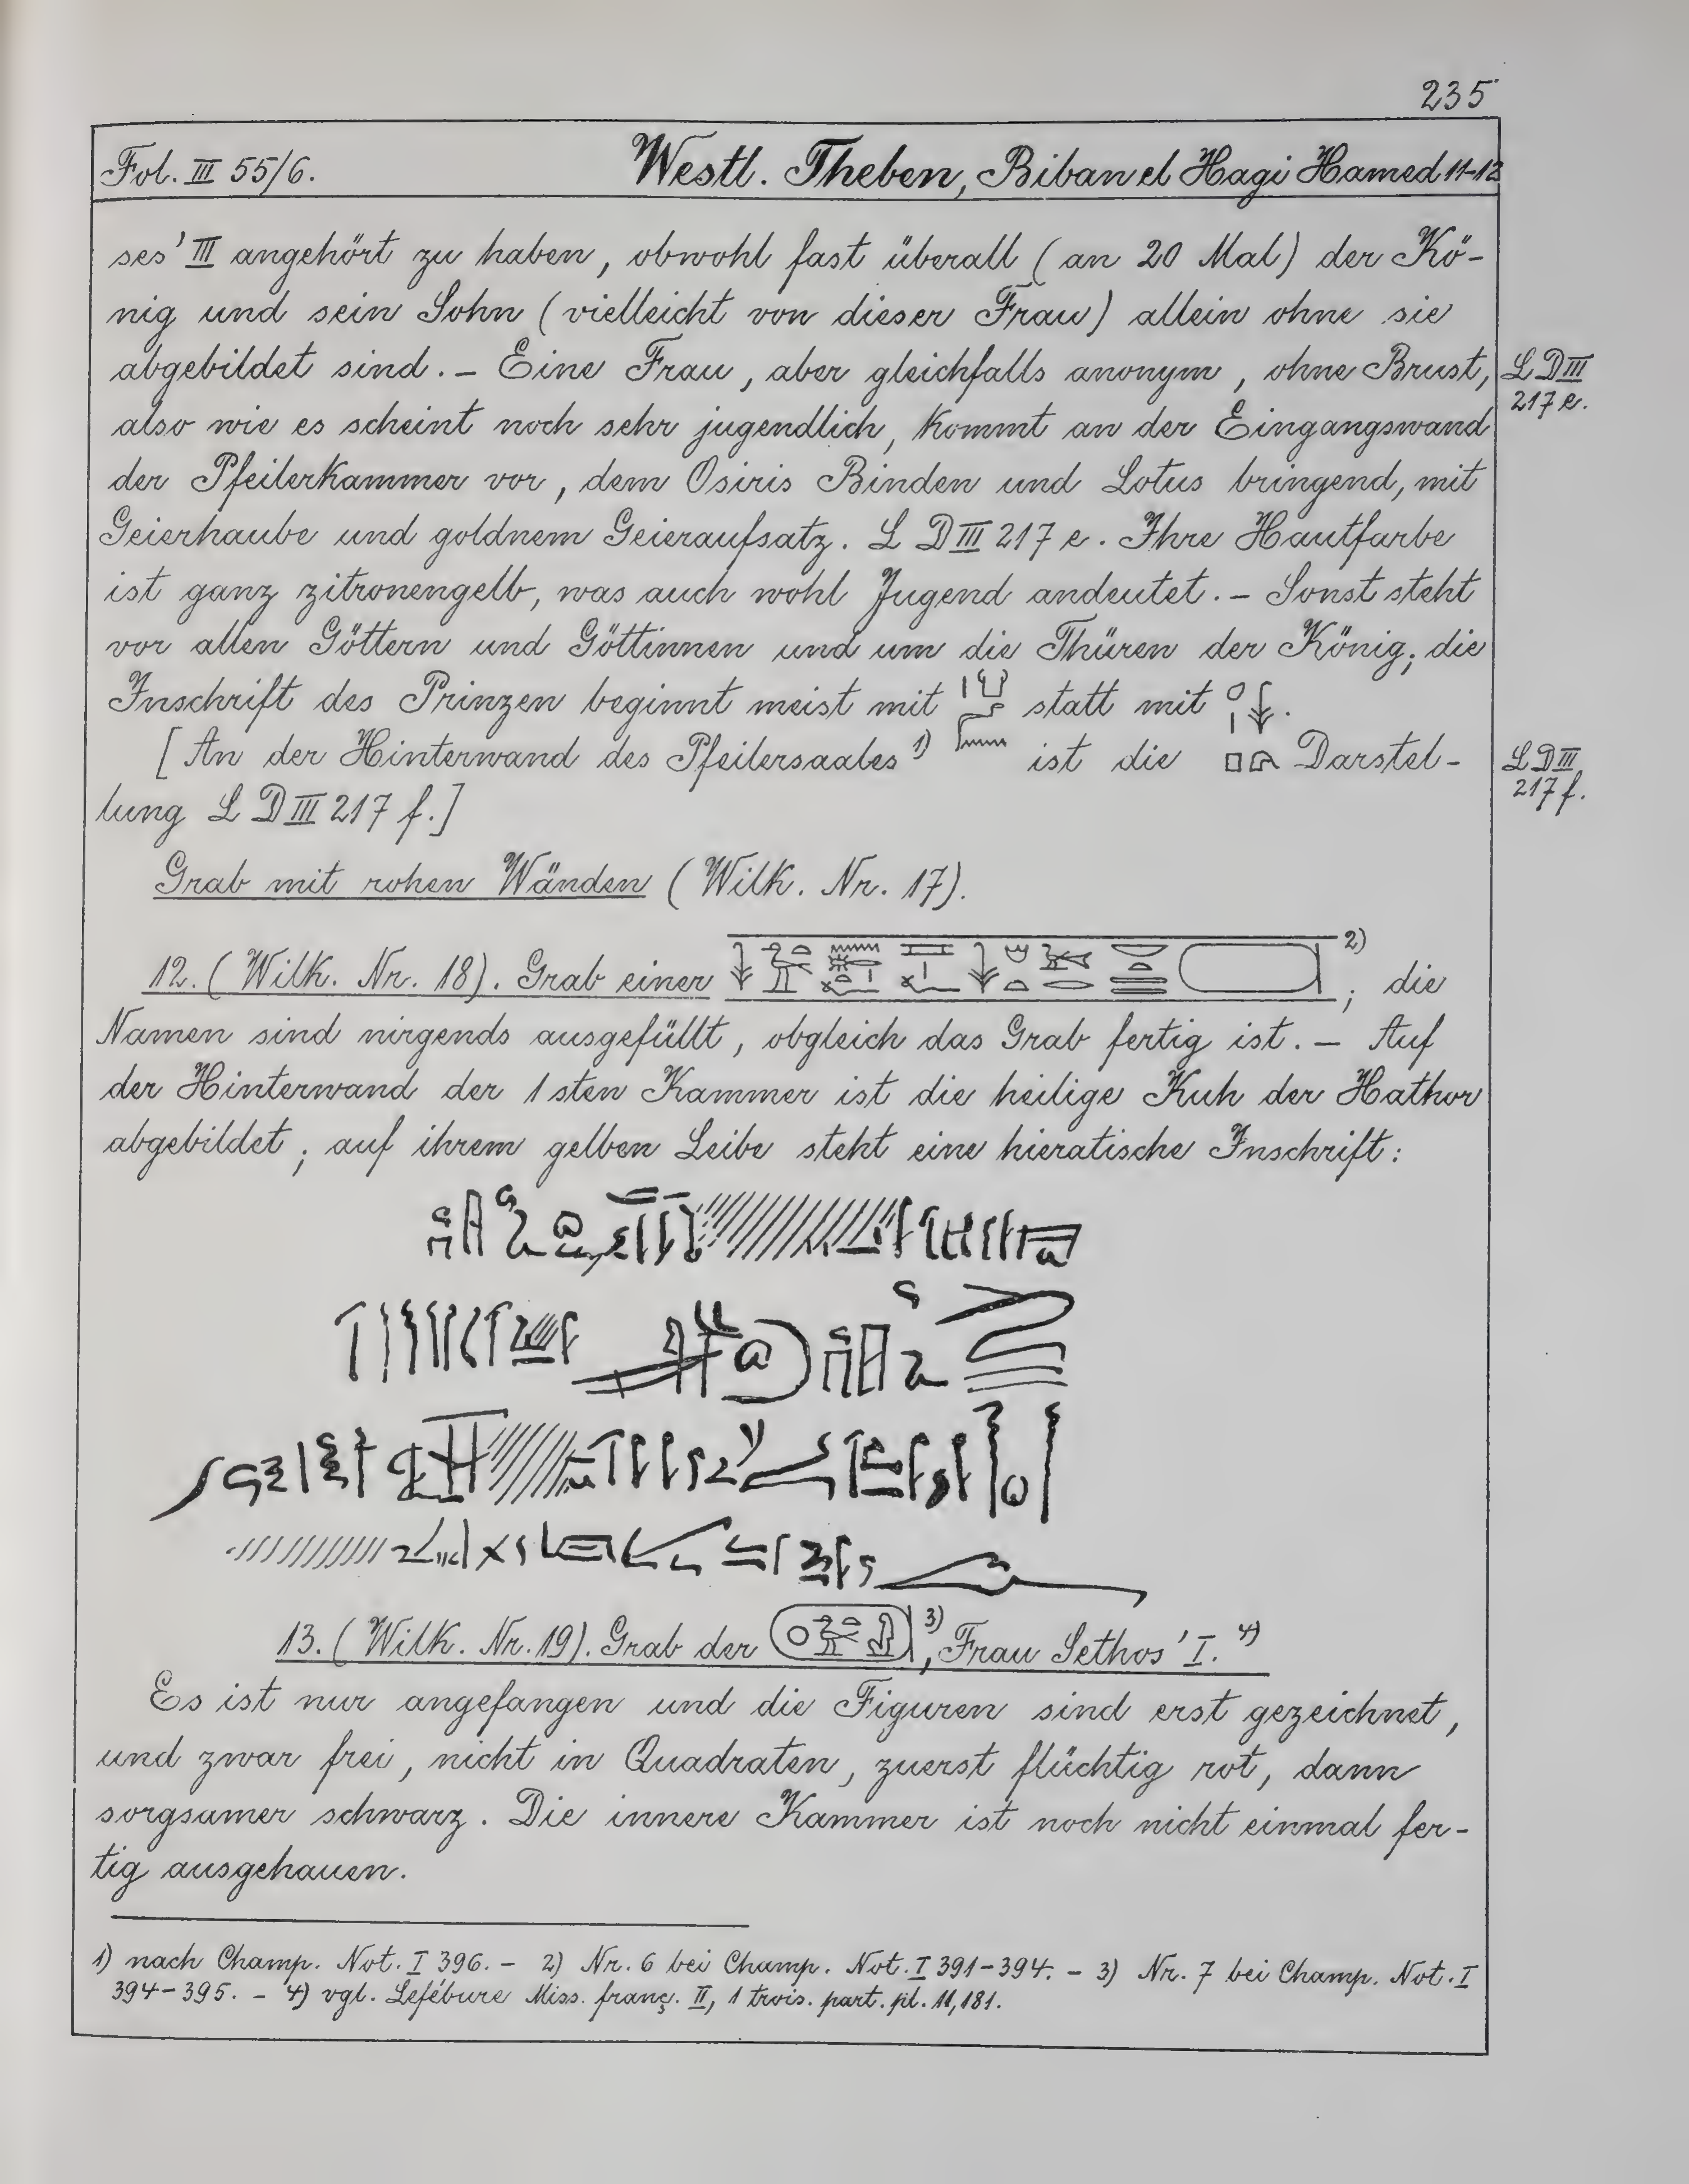 235
Fol. III 55/6. Westl. Theben, Biban el Hagi Hamed 11-13
ses' III angehört zu haben, obwohl fast überall (an 20 Mal) der Kö-
nig und sein Sohn (vielleicht von dieser Frau) allein ohne sie
abgebildet sind. - Eine Frau, aber gleichfalls anonym, ohne Brust,
LD III
217 e.
also wie es scheint noch sehr jugendlich, kommt an der Eingangswand
der Pfeilerkammer vor, dem Osiris Binden und Lotus bringend, mit
Geierhaube und goldnem Geieraufsatz. L D III 217 e. Ihre Hautfarbe
ist ganz zitronengelb, was auch wohl Jugend andeutet. - Sonst steht
vor allen Göttern und Göttinnen und um die Thüren der König; die
Inschrift des Prinzen beginnt meist mit statt mit .
[An der Hinterwand des Pfeilersaales 1) ist die Darstel-
LD III
217 f.
lung L D III 217 f.]
Grab mit rohen Wänden (Wilk. Nr. 17).
12. (Wilk. Nr. 18). Grab einer 2); die
Namen sind nirgends ausgefüllt, obgleich das Grab fertig ist. - Auf
der Hinterwand der 1sten Kammer ist die heilige Kuh der Hathor
abgebildet; auf ihrem gelben Leibe steht eine hieratische Inschrift:
13. (Wilk. Nr. 19). Grab der 3), Frau Sethos' I. 4)
Es ist nur angefangen und die Figuren sind erst gezeichnet,
und zwar frei, nicht in Quadraten, zuerst flüchtig rot, dann
sorgsamer schwarz. Die innere Kammer ist noch nicht einmal fer-
tig ausgehauen.
1) nach Champ. Not. I 396. - 2) Nr. 6 bei Champ. Not. I 391-394. - 3) Nr. 7 bei Champ. Not. I
394-395. - 4) vgl. Lefébure Miss. franç. II, 1 trois. part. pl. 11, 181.